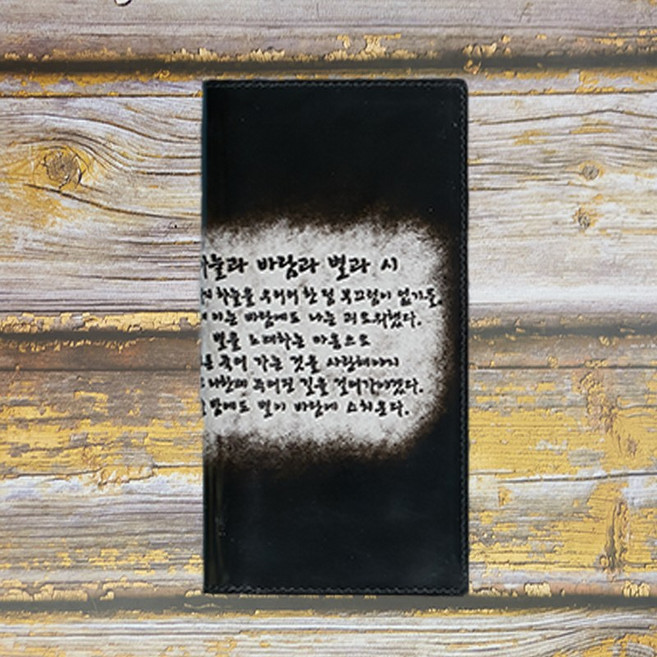 바람과 별과 시
하늘을 우러러 한 점 부끄럼이 없기를,
이는 바람에도 나는 괴로워했다.
별을 노래하는 마음으로
죽어 가는 것을 사랑해야지
나한테 주어진 길을 걸어가야겠다.
밤에도 별이 바람에 스치운다.